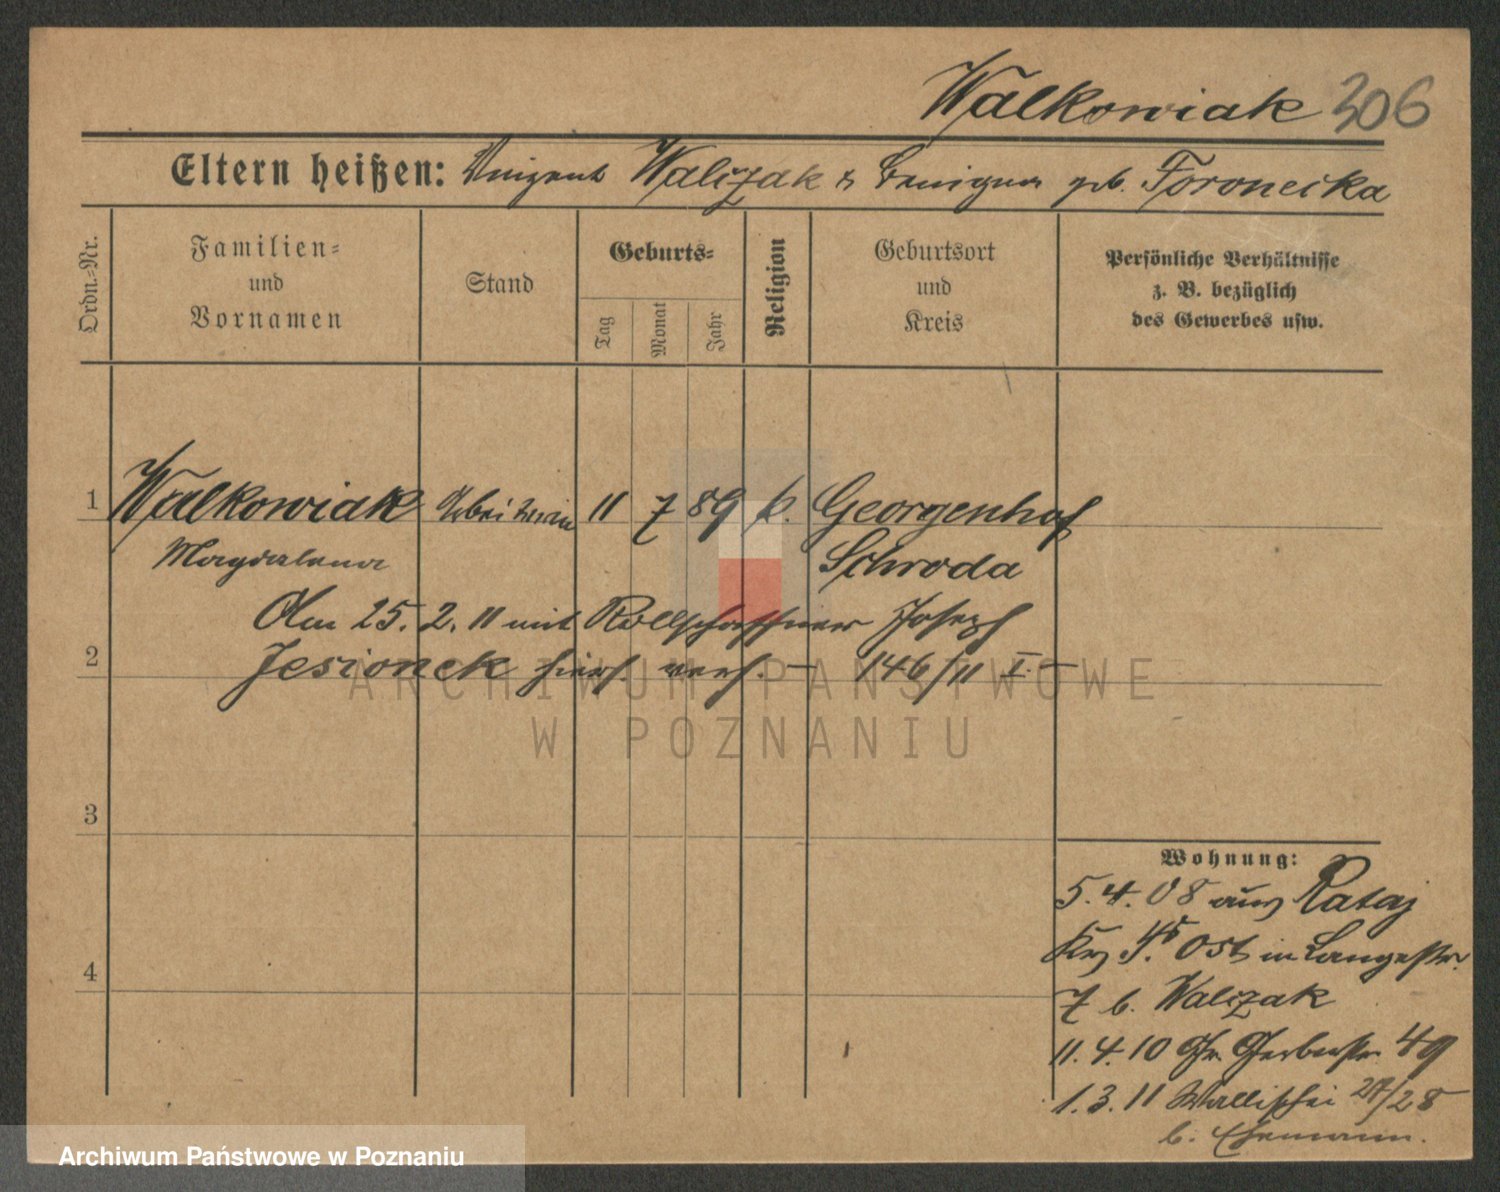 Walkowiak 306
Eltern heißen: Vinzent Walczak & Benigna geb. Toronecka
Ordn.=Nr.
Familien=
und
Vornamen
Stand
Geburts=
Tag
Monat
Jahr
Religion
Geburtsort
und
Kreis
Persönliche Verhältnisse
z. B. bezüglich
des Gewerbes usw.
1 Walkowiak Arbeiterin 11 7 89 k. Georgenhof
Magdalena Schroda
Am 25. 2. 11 mit Rollschaffner Joseph
2 Jesionek hiers. verh. — 146/11 I. —
3
4
Wohnung:
5. 4. 08 aus Rataj
Ost in Langestr.
7 b. Walczak
11. 4. 10 Gr. Gerberstr. 49
1. 3. 11 Wallischei 27/28
b. Ehemann.
ARCHIWUM PAŃSTWOWE
W POZNANIU
Archiwum Państwowe w Poznaniu